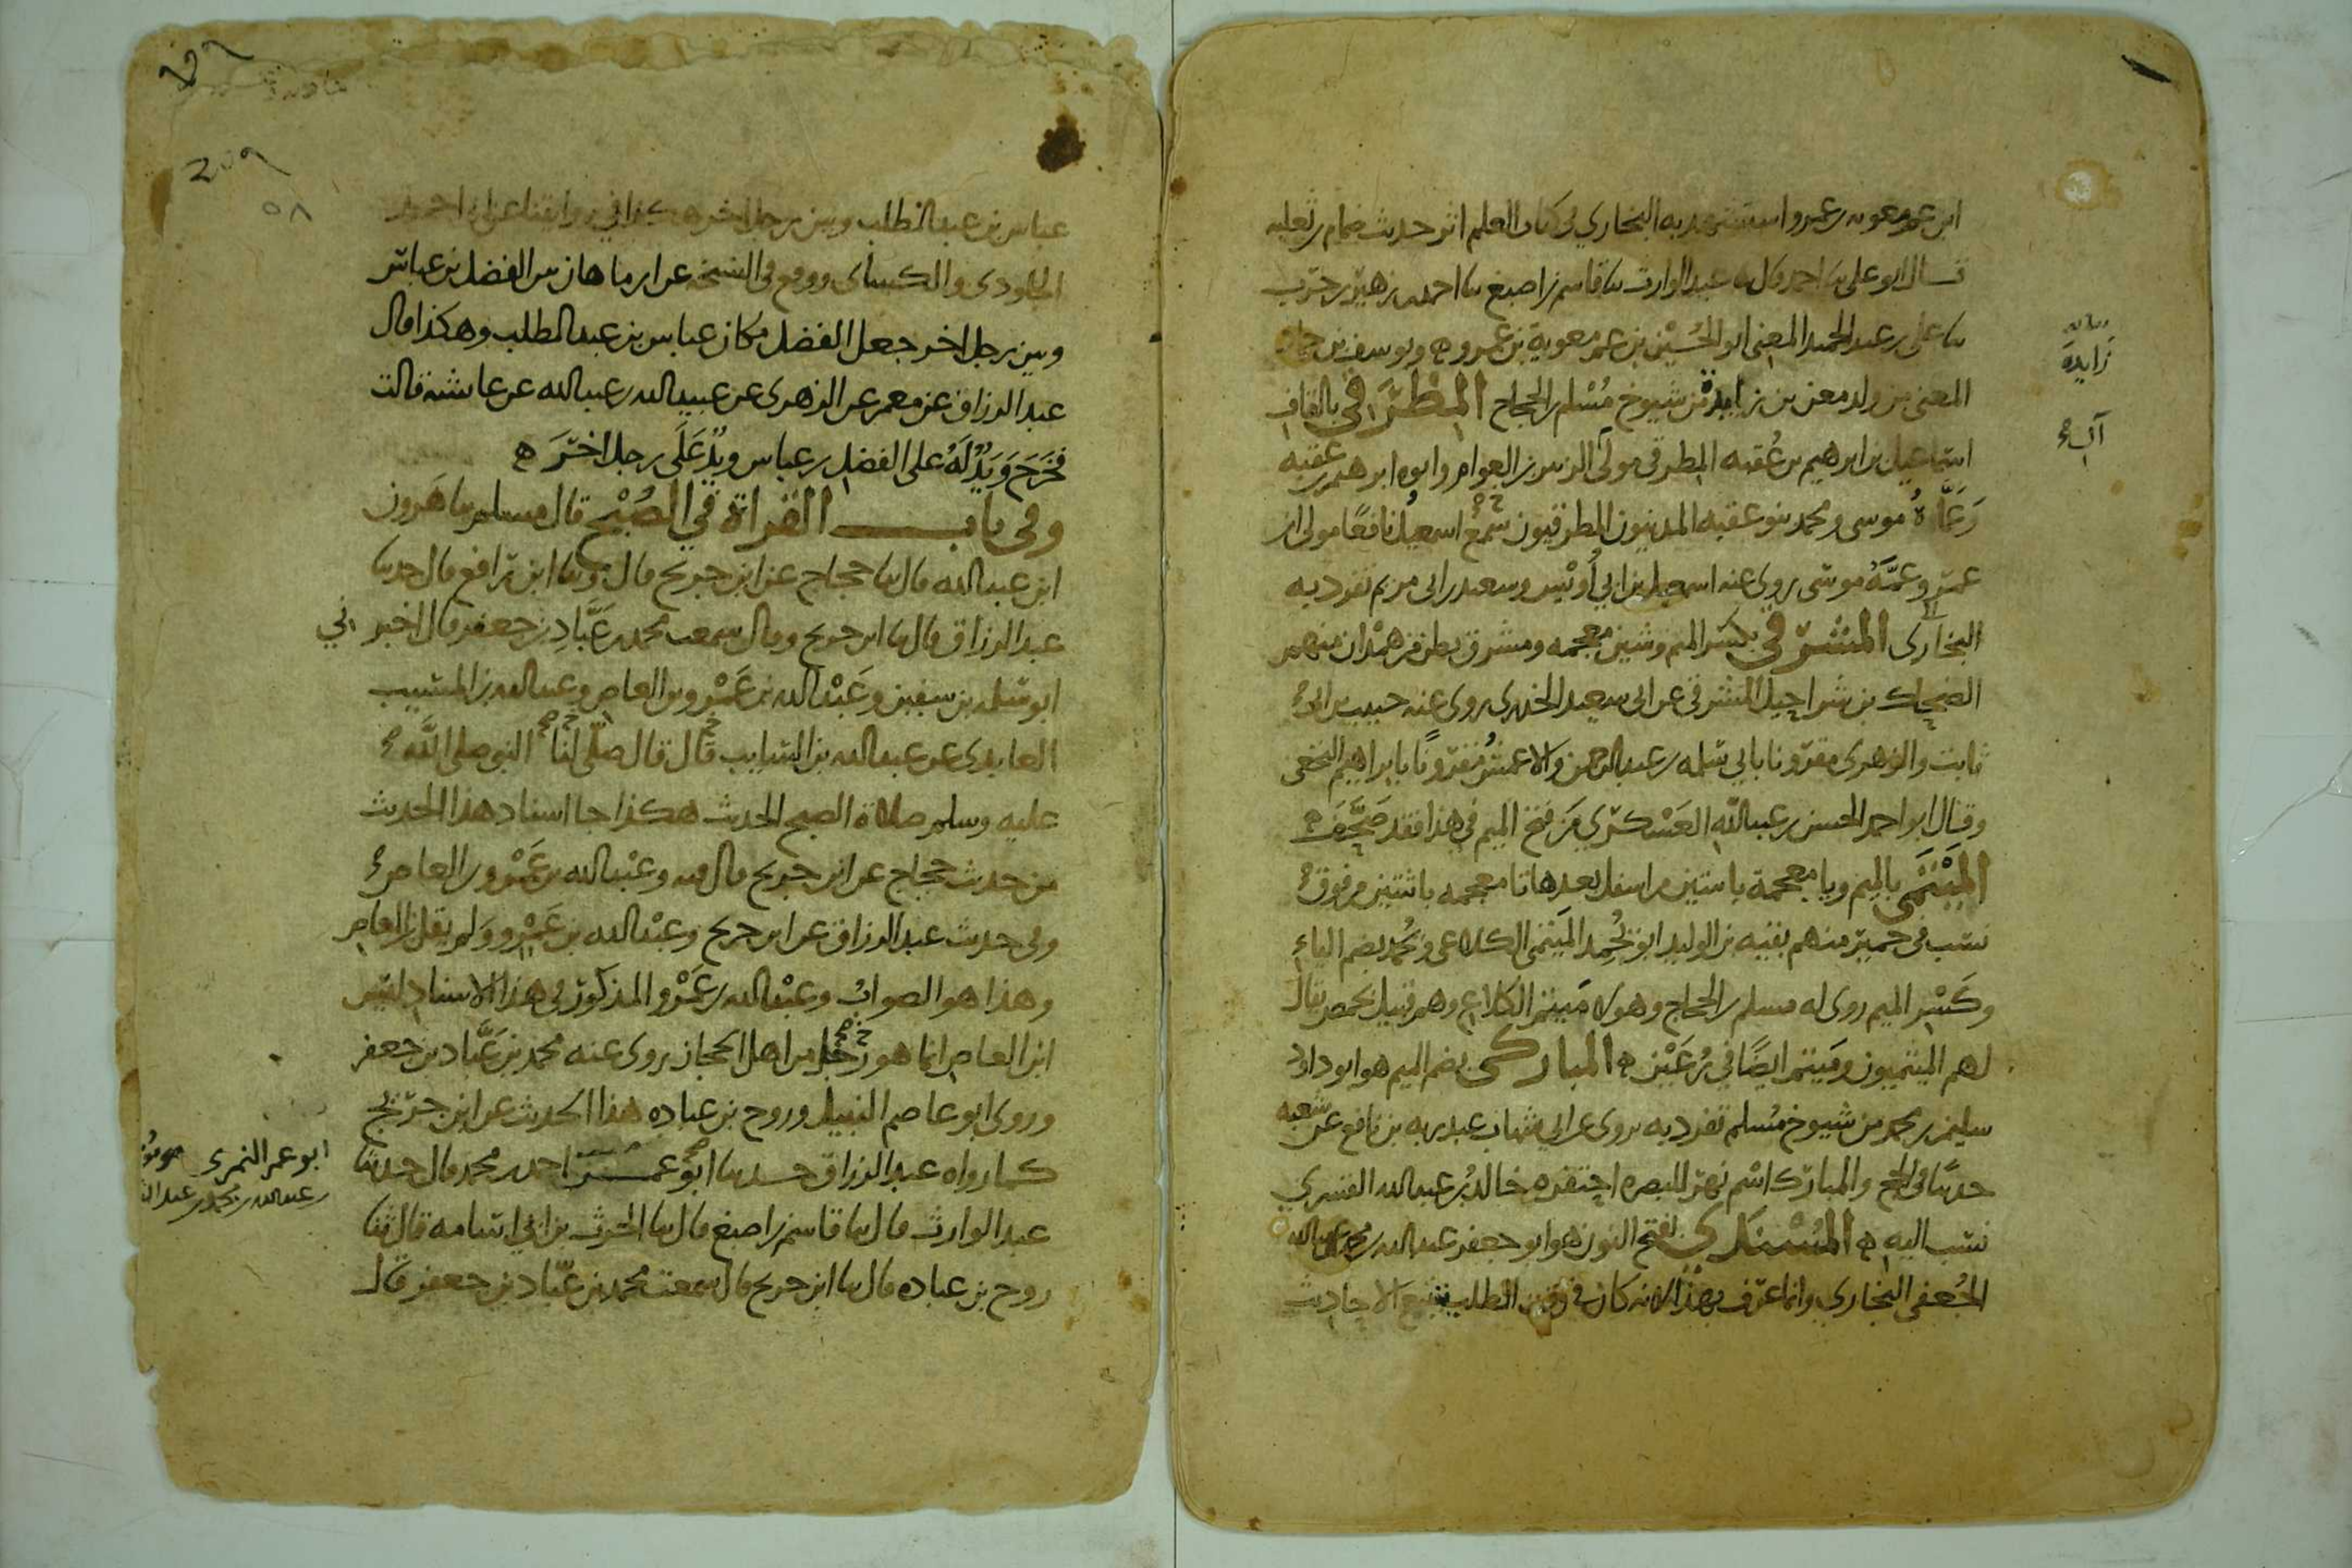 ابن عمر معوية بن عمرو استشهد به البخاري في كتاب العلم اثر حديث ضمام بن ثعلبه
قال ابو علي نا احمد قال نا عبد الوارث نا قاسم بن اصبغ نا احمد بن زهير بن حرب
نا علي بن عبد الحميد المعنى ابو الحسين بن عم معوية بن عمرو ه ويوسف بن حماد
المعنى من ولد معن بن زايدة من شيوخ مسلم بن الحجاج المطرقي بالقاف
اسماعيل بن ابرهيم بن عقبه المطرقي مولى آل الزبير بن العوام وابوه ابرهيم بن عقبه
وعماه موسى ومحمد بنو عقبه المدنيون المطرقيون سمع اسمعيل نافعا مولى ابن
عمر وعمه موسى روى عنه اسمعيل بن ابي اويس وسعيد بن ابي مريم تفرد به
البخاري المشرقي بكسر الميم وشين معجمه ومشرق بطن من همدان منهم
الضحاك بن شراحيل المشرقي عن ابي سعيد الخدري روى عنه حبيب بن ابي
ثابت والزهري مقرونا بابي سلمه بن عبد الرحمن والاعمش مقرونا بابراهيم النخعي
وقال ابو احمد الحسن بن عبد الله العسكري من فتح الميم في هذا فقد صحف ه
الميتمي بالميم ويا معجمة باثنتين من اسفل بعدها تا معجمه باثنتين من فوق
نسب في حمير منهم بقيه بن الوليد ابو يحمد الميتمي الكلاعي ويحمد بضم الياء
وكسر الميم روى له مسلم بن الحجاج وهو من ميتم الكلاع وهم قبيل بحمص يقال
لهم الميتميون وميتم ايضا في رعين ه المباركي بضم الميم هو ابو داود
سليمن بن محمد من شيوخ مسلم تفرد به يروي عن ابي شهاب عبد ربه بن نافع عن شعبه
حديثا في الحج والمبارك اسم نهر بالبصره احتفره خالد بن عبد الله القسري
نسب اليه ه المسندي بفتح النون هو ابو جعفر عبد الله بن محمد بن عبد الله
الجعفي البخاري وانما عرف بهذا لانه كان في وقت الطلب يتتبع الاحاديث
زايدة
آل
عباس بن عبد المطلب وبين رجل اخر هكذا في روايتنا عن ابي احمد
الجلودي والكسائي ووقع في النسخه عن ابن ماهان بين الفضل بن عباس
وبين رجل اخر جعل الفضل مكان عباس بن عبد المطلب وهكذا قال
عبد الرزاق عن معمر عن الزهري عن عبيد الله بن عبد الله عن عايشه قالت
فخرج ويد له على الفضل بن عباس ويد على رجل اخر ه
وفي باب القراة في الصبح قال مسلم نا هرون
ابن عبد الله قال نا حجاج عن ابن جريج قال ونا ابن رافع قال حدثنا
عبد الرزاق قال نا ابن جريج وقال سمعت محمد بن عباد بن جعفر قال اخبرني
ابو سلمه بن سفين وعبد الله بن عمرو بن العاص وعبد الله بن المسيب
العابدي عن عبد الله بن السايب قال قال صلى لنا النبي صلى الله
عليه وسلم صلاة الصبح الحديث هكذا جا اسناد هذا الحديث
من حديث حجاج عن ابن جريج قال فيه وعبد الله بن عمرو بن العاص
وفي حديث عبد الرزاق عن ابن جريج وعبد الله بن عمرو ولم يقل بن العاص
وهذا هو الصواب وعبد الله بن عمرو المذكور في هذا الاسناد ليس
ابن العاص انما هو رجل من اهل الحجاز روى عنه محمد بن عباد بن جعفر
وروى ابو عاصم النبيل وروح بن عباده هذا الحديث عن ابن جريج
كما رواه عبد الرزاق حدثنا ابو عمر احمد بن محمد قال حدثنا
عبد الوارث قال نا قاسم بن اصبغ قال نا الحرث بن ابي اسامه قال ثنا
روح بن عباده قال نا ابن جريج قال سمعت محمد بن عباد بن جعفر قال
ابو عمر النمري
بن عبد الله بن محمد بن عبد